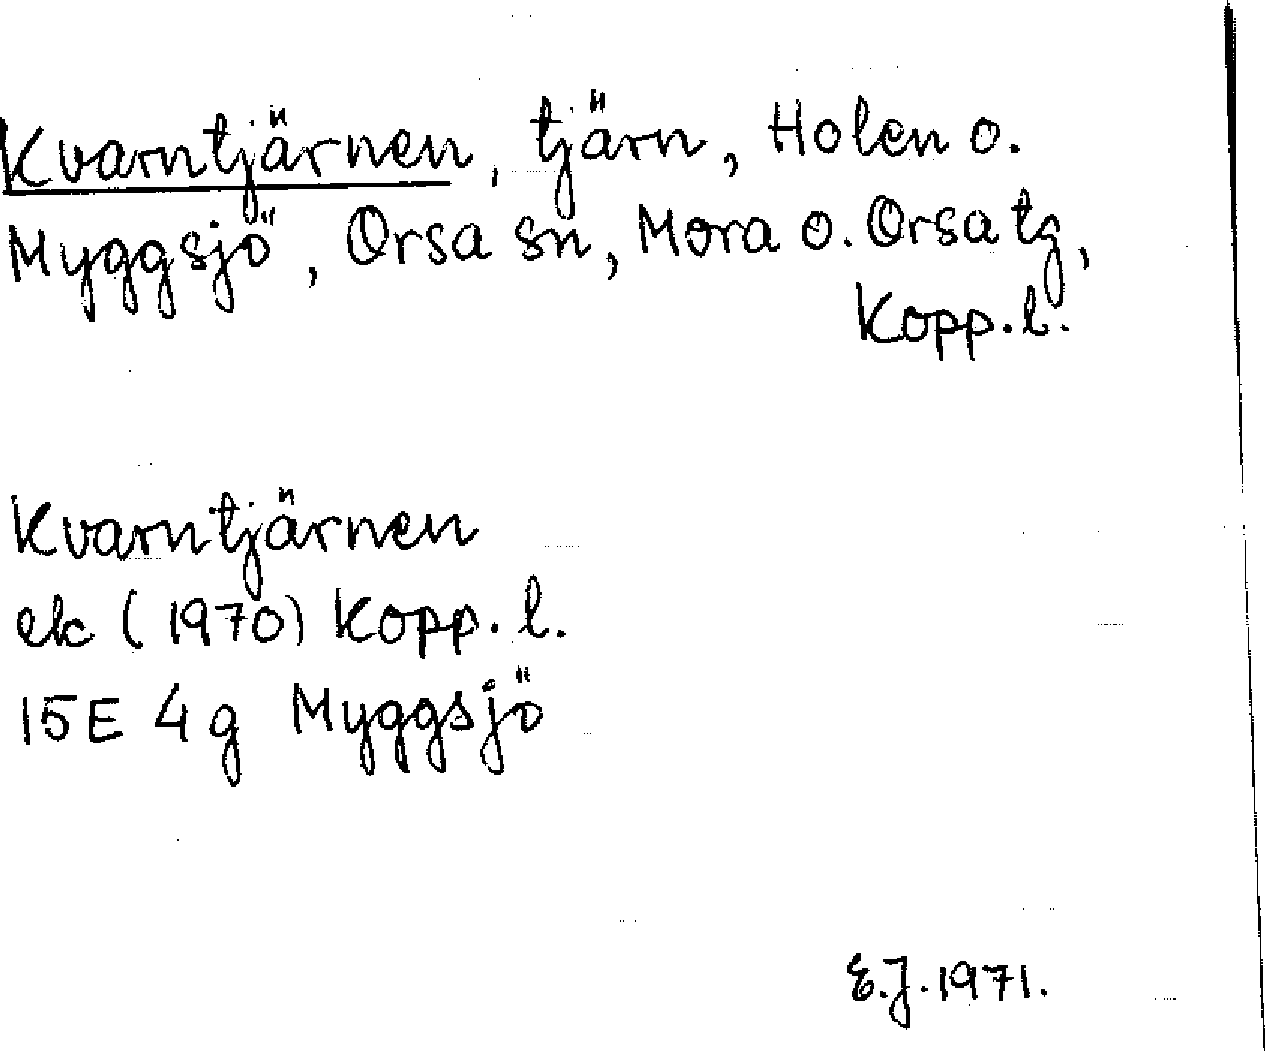 Kvarntjärnen, tjärn, Holen o.
Myggsjö, Orsa sn, Mora o. Orsa tg,
Kopp. l.
Kvarntjärnen
ek (1970) Kopp. l.
15E 4g Myggsjö
E.J. 1971.